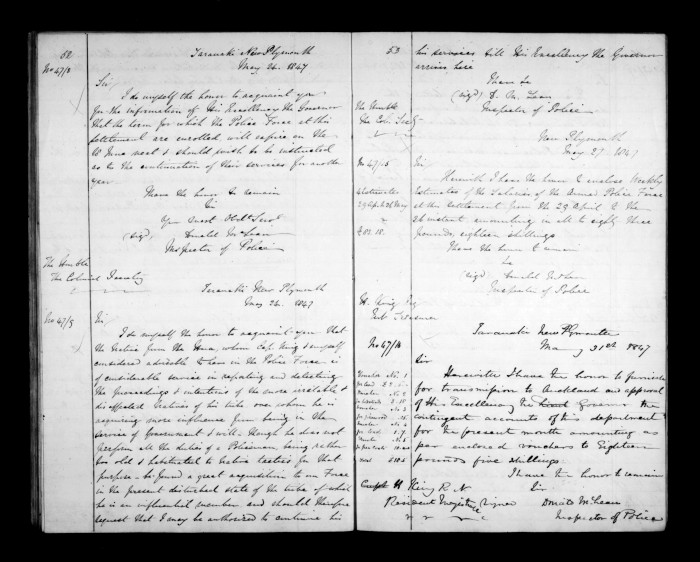 52
Taranaki New Plymouth
May 24. 1847
No 47/8
Sir
I do myself the honor to acquaint you
for the information of His Excellency the Governor
that the term for which the Police Force at this
settlement are enrolled will expire on the
10 June next & should wish to be instructed
as to the continuation of their services for another
year
I have the honor to remain
Sir
Your most Obdt Servt
(sigd) Donald McLean
Inspector of Police
The Honble
The Colonial Secretary
Taranaki New Plymouth
May 24. 1847
No 47/9
Sir
I do myself the honor to acquaint you that
the Native from the whom Cap. King & myself
considered advisable to have in the Police Force is
of considerable service in and detecting
the proceedings & intentions of the more &
disaffected Natives of his tribe over whom he is
acquiring more influence from being in the
service of Government & will though he does not
perform all the duties of a Policeman being rather
too old & habituated to native for that
purpose be found a great acquisition to our Force
in the present disturbed state of the tribe of which
he is an influential member and should therefore
request that I may be authorized to continue his
53
his services till His Excellency the Governor
arrives here
I have &c
(sigd) D. McLean
Inspector of Police
The Honble
The Col. Secty
New Plymouth
May 27. 1847
No 47/15
Sir
Herewith I have the honor to enclose Weekly
Estimates of the Salaries of the Armed Police Force
at this settlement from the 29 April to the
26 instant amounting in all to eighty three
pounds, eighteen shillings
I have the honor to remain
&c
(sigd) Donald McLean
Inspector of Police
29 April to 26 May
£83.18.
H. King Esq
Sub Treasurer
Taranaki New Plymouth
May 31st 1847
No 47/16
Sir
Herewith I have the honor to furnish
for transmission to Auckland on approval
of His Excellency the Governor the
contingent accounts of this department
for the present month amounting as
per enclosed vouchers to Eighteen
pounds five shillings.
I have the honor to remain
Sir
Donald McLean
Inspector of Police
Voucher No 1
Total £18.5
Captn H King R.N
Resident Magistrate
signed